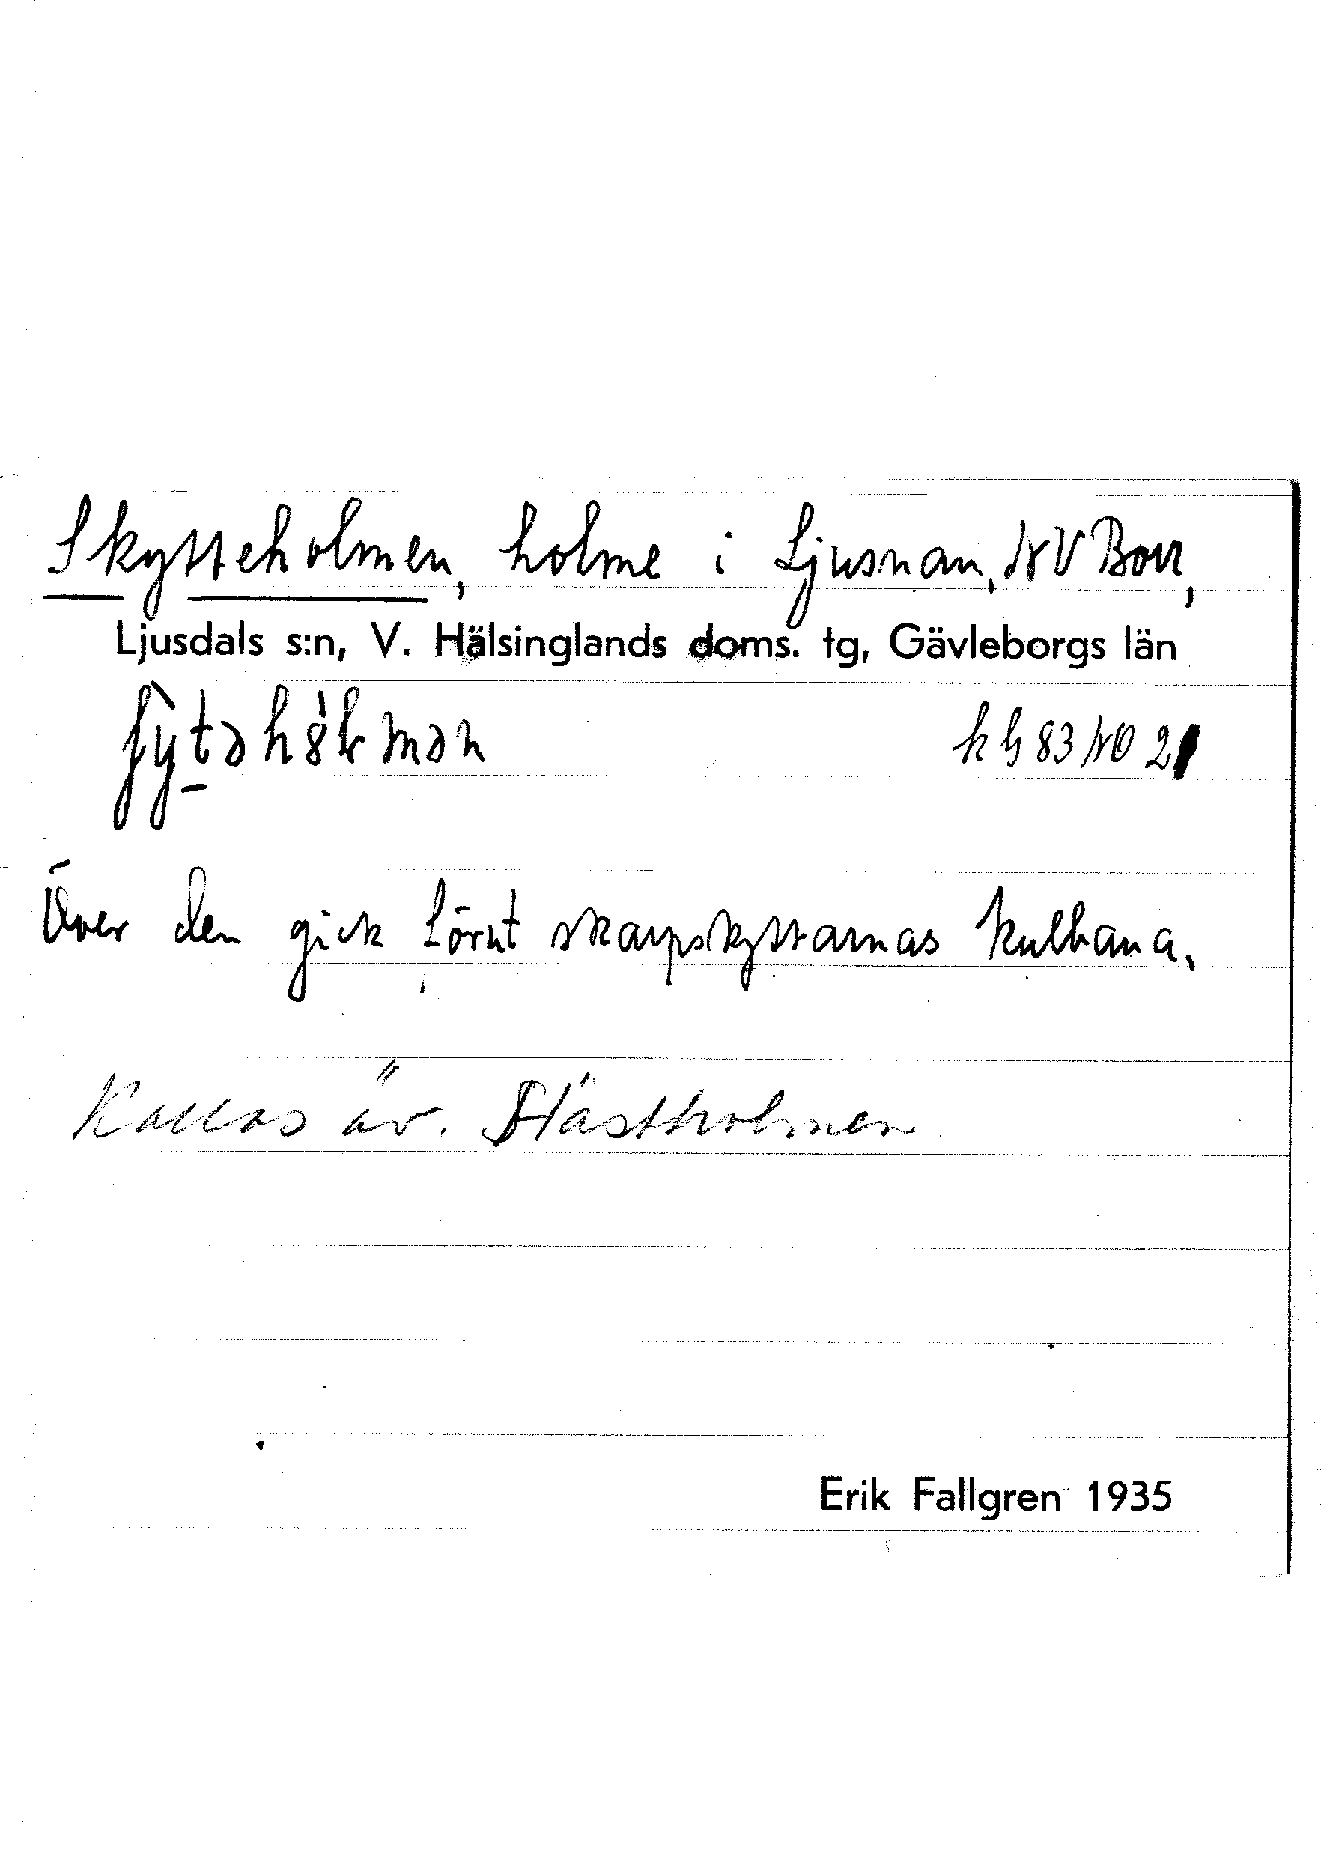 Skytteholmen, holme i Ljusnan, NV Borr,
Ljusdals s:n, V. Hälsinglands doms. tg, Gävleborgs län
kb 83 NO 21
Över den gick förut skarpskyttarnas kulbana.
Kallas äv. Hästholmen
Erik Fallgren 1935